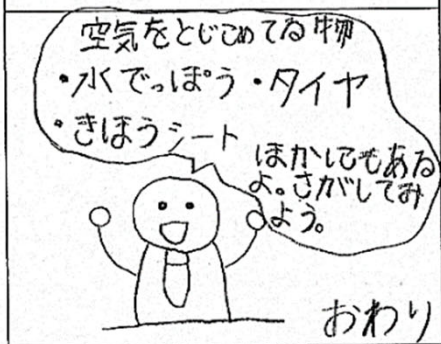 空気をとじこめてる物
・水でっぽう・タイヤ
・きほうシート
ほかにもある
よ。さがしてみ
よう。
おわり